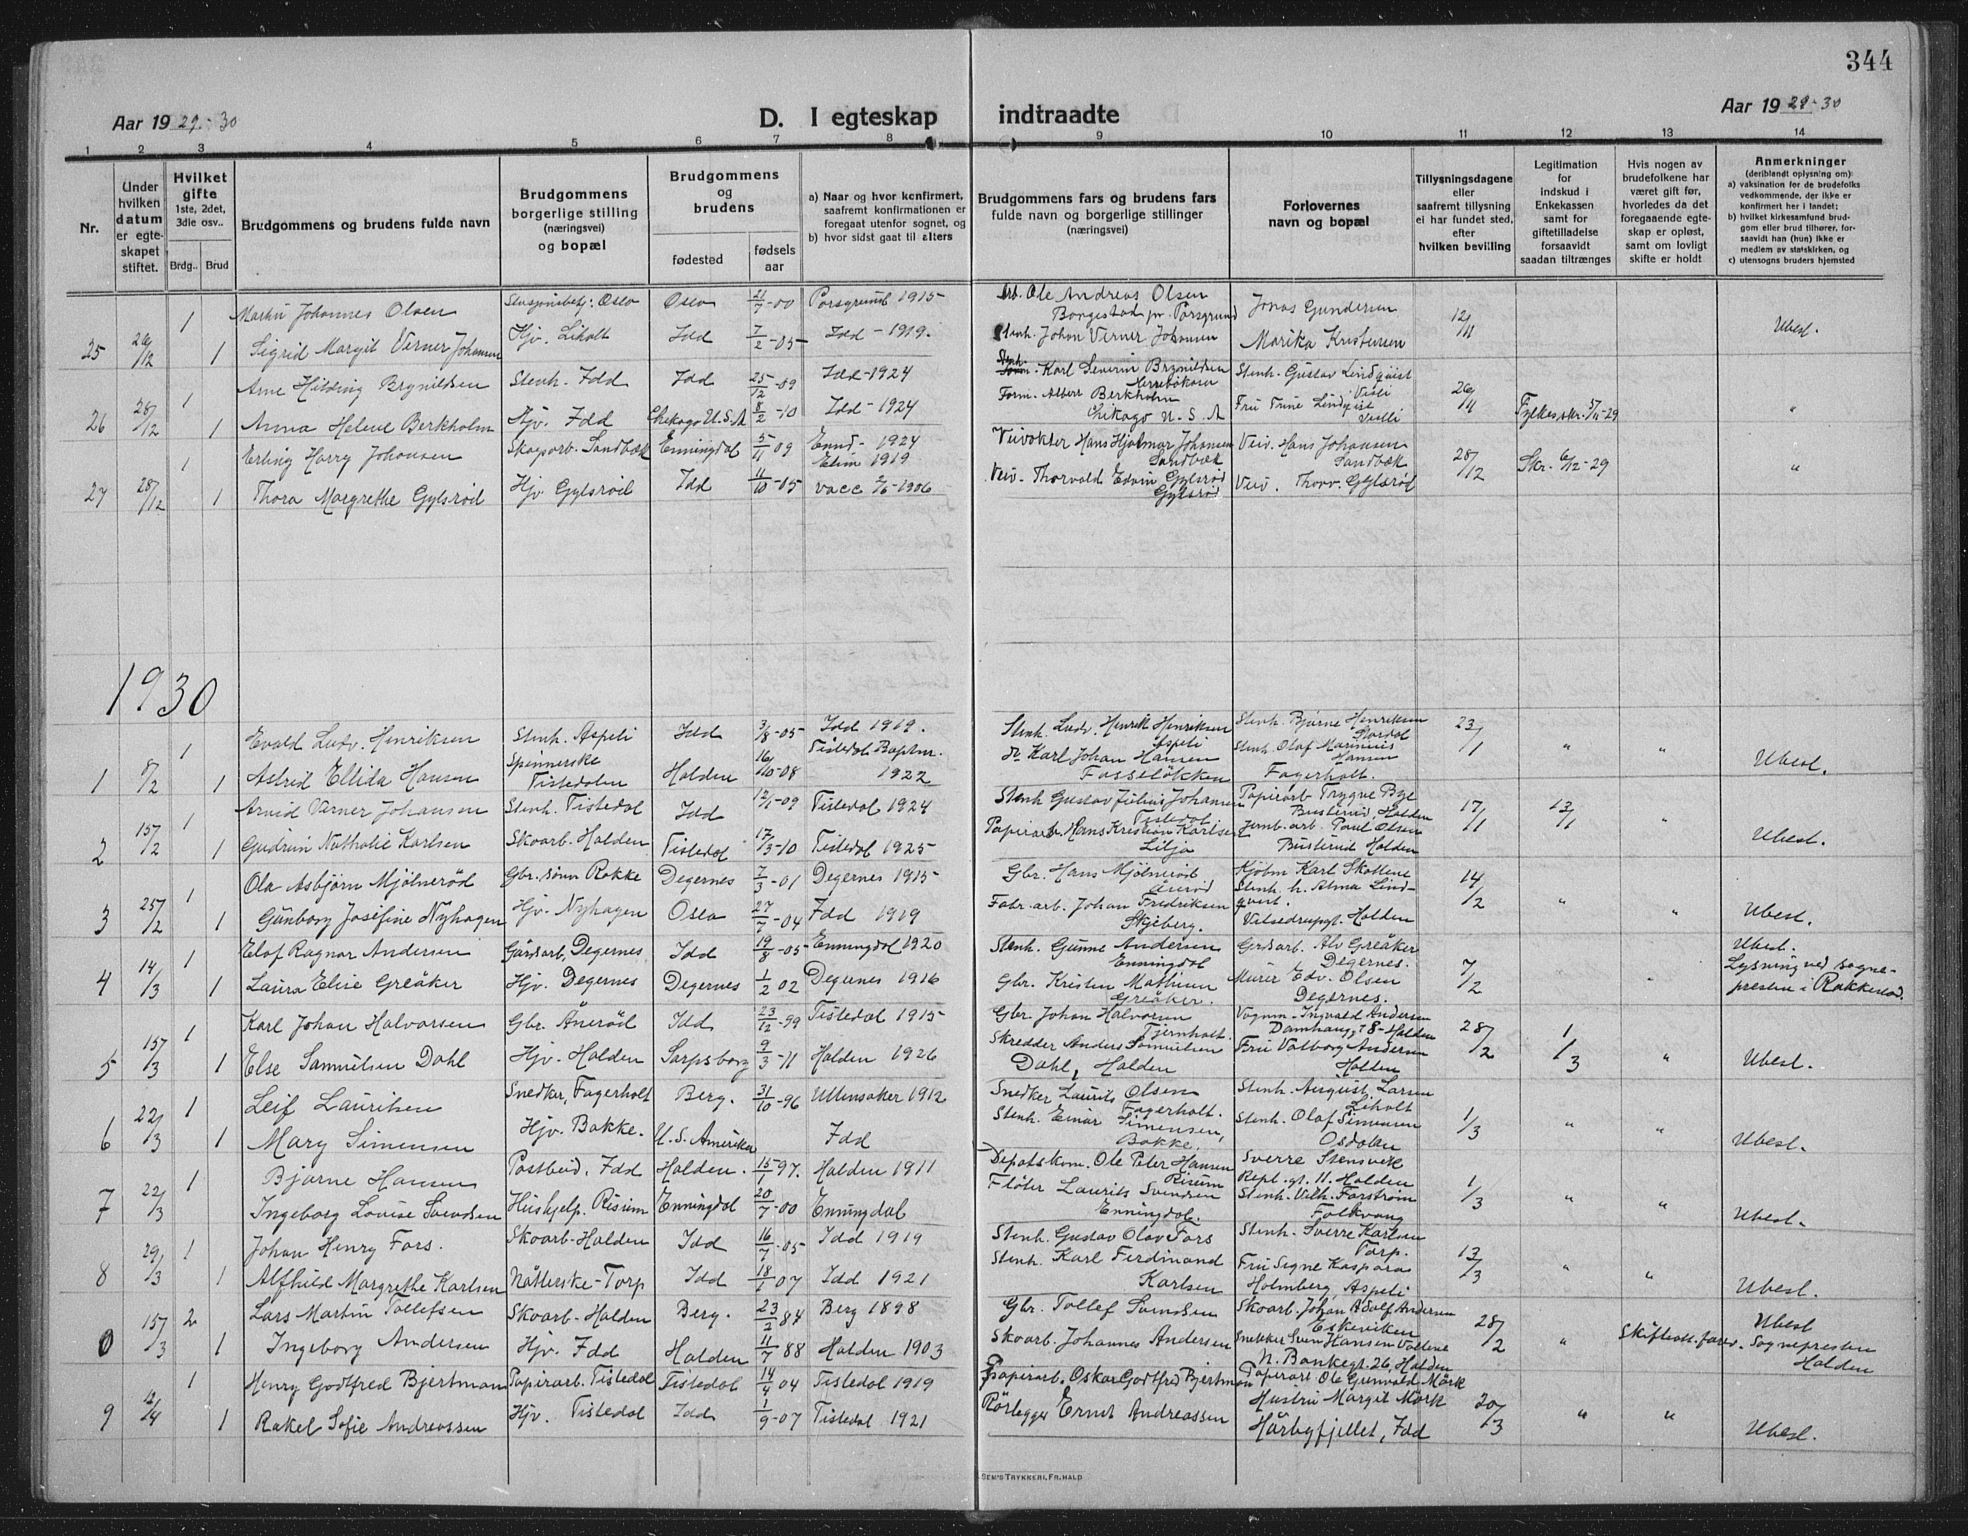 344
Aar 19 29-30 D. I egteskap indtraadte Aar 19 29-30
1 2 3 4 5 6 7 8 9 10 11 12 13 14
Nr.
Under hvilken datum er egteskapet stiftet.
Hvilket gifte 1ste, 2det, 3die osv..
Brdg.. Brud
Brudgommens og brudens fulde navn
Brudgommens borgerlige stilling (næringsvei) og bopæl
Brudgommens og brudens
fødested
fødsels aar
a) Naar og hvor konfirmert, saafremt konfirmationen er foregaat utenfor sognet, og
b) hvor sidst gaat til alters
Brudgommens fars og brudens fars fulde navn og borgerlige stillinger (næringsvei)
Forlovernes navn og bopæl
Tillysningsdagene eller saafremt tillysning ei har fundet sted, efter hvilken bevilling
Legitimation for indskud i Enkekassen samt for giftetilladelse forsaavidt saadan tiltrænges
Hvis nogen av brudefolkene har været gift før, hvorledes da det foregaaende egteskap er opløst, samt om lovlig skifte er holdt
Anmerkninger (deriblandt oplysning om)
a) vaksination for de brudefolks vedkommende, der ikke er konfirmert her i landet;
b) hvilket kirkesamfund brudgom eller brud tilhører, forsaavidt han (hun) ikke er medlem av statskirken, og
c) utensogns bruders hjemsted
1 Martin Johannes Olsen Oslo Oslo 21/7-00 Porsgrund 1915 Arb. Ole Andreas Olsen Borgestad pr Porsgrund Jonas Gundersen
25 1 Sigrid Margit Verner Johansen Hjv. Liholt Idd 7/2-05 Idd - 1919. Stenh. Johan Verner Johansen Marika Kristensen 12/11 Ubesl.
1 Arne Hilding Brynildsen Stenh. Idd Idd 25/12-09 Idd-1924 Stenh. Karl Severin Brynildsen Stenh. Gustav Lindqvist
26 28/12 1 Anna Helene Berkholm Hjv. Idd Chikago U.S.A 8/2-10 Idd-1924 Form. Albert Berkholm Chikago U.S.A Fru Trine Lindqvist 26/11 "
1 Erling Harry Johansen Skogsarb. Sandbæk Enningdal 5/11 09 Ennd- 1924 Veivokter Hans Hjalmar Johansen Sandbæk Veiv. Hans Johansen Sandbæk
27 28/12 1 Thora Margrethe Gylsrød Hjv Gylsrød Idd 11/10-05 Elim 1919 Veiv. Thorvald Edvin Gylsrød Gylsrød Veiv. Thorv. Gylsrød 28/12 Skr. 6/12-29 "
1930
1 Evald Ludv. Henriksen Stenh. Aspeli Idd 3/8-05 Idd 1919. Stenh. Ludv. Henrik Henriksen Aspeli Stenh. Bjarne Henriksen
1 8/2 1 Astrid Ellida Hansen Spinnerske Tistedalen Halden 16/10-08 Tistedal Baptm. 1922 Karl Johan Hansen Fosseløkken Stenh. Olaf Marinius Hansen Fagerholt. 23/1 " " Ubesl.
1 Arvid Verner Johansen Stenh. Tistedal Idd 12/1-09 Tistedal 1924 Stenh Gustav Julius Johansen Tistedal Papirarb Trygve Bye Busterud, Halden
2 15/2 1 Gudrun Nathalie Karlsen Skoarb. Halden Tistedal 17/3-10 Tistedal 1925 Papirarb. Hans Kristian Karlsen Lilja Jernb.arb. Paul Olsen Busterud Halden 17/11 " Ubesl.
Ola Asbjørn Mjølnerød Gbr. sønn Rokke Degernes 7/3-01 Degernes 1915 Gbr. Hans Mjølnerød Karl Skottene
3 25/2 1 Gunborg Josefine Nyhagen Hjv. Nyhagen Oslo 27/7-04 Idd 1919 Fabr. arb. Johan Fredriksen Skjeberg. Stenh. h. Alma Lindqvist. Halden 14/2 " " Ubesl.
1 Elof Ragnar Andersen Gårdsarb. Degernes Idd 19/8-05 Enningdal 1920 Stenh. Gunne Andersen Enningdal Grdsarb. Alv Greåker Degernes.
4 14/3 1 Laura Elise Greåker Hjv. Degernes Degernes 1/2 02 Degernes 1916 Gbr. Kristen Mathisen Greåker. Murer Edv. Olsen Degernes. 7/2 " Ubesl. Lysning ved sognepresten i Rakkestad.
1 Karl Johan Halvorsen Gbr. Ånerød Idd 23/12-99 Tistedal 1915 Gbr. Johan Halvorsen Tjernholt. Vognm. Ingvald Andersen Damhaugt 8- Halden
5 15/3 1 Else Samuelsen Dahl Hjv. Halden Sarpsborg 9/3-11 Halden 1926 Skredder Anders Samuelsen Dahl, Halden Fru Valborg Andersen Halden 28/2 1/3 " Ubesl.
1 Leif Lauritsen Snedker, Fagerholt Berg. 31/10-96 Ullensaker 1912 Snedker Laurits Olsen Fagerholt. Stenh. August Larsen Liholt
6 22/3 1 Mary Simensen Hjv. Bakke- U.S. Amerika Idd Stenh. Einar Simensen, Bakke. Stenh. Olaf Simensen Osdalen 1/3 " " Ubesl.
1 Bjarne Hansen Postbud. Idd Halden. 15/1-97. Halden 1911 Depotskom. Ole Peter Hansen Risum Sverre Stensvek Repl. gt. 11. Halden
7 22/3 Ingeborg Lovise Svendsen Hushjelp. Risum Enningdal 20/7-00 Enningdal Fløter Laurits Svendsen Enningdal. Stenh. Vilh. Forstrøm Folkvang 1/3 " " Ubesl.
1 Johan Henry Fors. Skoarb-Halden Idd 16/7-05 Idd 1919 Stenh. Gustav Olav Fors Stenh. Sverre Karlsen Torp.
8 29/3 1 Alfhild Margrethe Karlsen Nåtlerske-Torp Idd 18/1-07 Idd 1921 Stenh. Karl Ferdinand Karlsen Fru Signe Kaspara Holmberg, Aspeli 13/3 " " Ubesl.
2 Lars Martin Tollefsen Skoarb-Halden Berg. 23/2 84 Berg 1898 Gbr. Tollef Svendsen Skoarb. Johan Adolf Andersen Eskeviken
0 15/3 1 Ingeborg Andersen Hjv. Idd Halden 11/7 88 Halden 1903 Skoarb. Johannes Andersen Snekker Sven Hansen N. Bankegt. 26, Halden 28/2 " Ubesl Sognepresten Halden
1 Henry Godtfred Bjertman Papirarb. Tistedal Tistedal 14/4 04 Tistedal 1919 Papirarb. Oskar Godtfred Bjertman Papirarb Ole Grunvald Mørk
9 12/4 1 Rakel Sofie Andreassen Hjv. Tistedal Idd 1/9-07 Tistedal 1921 Rørlegger Ernst Andreassen Hustru Margit Mørk Hårbyfjellet, Idd 20/3 " " Ubesl.
SEM'S TRYKKERI, FR.HALD